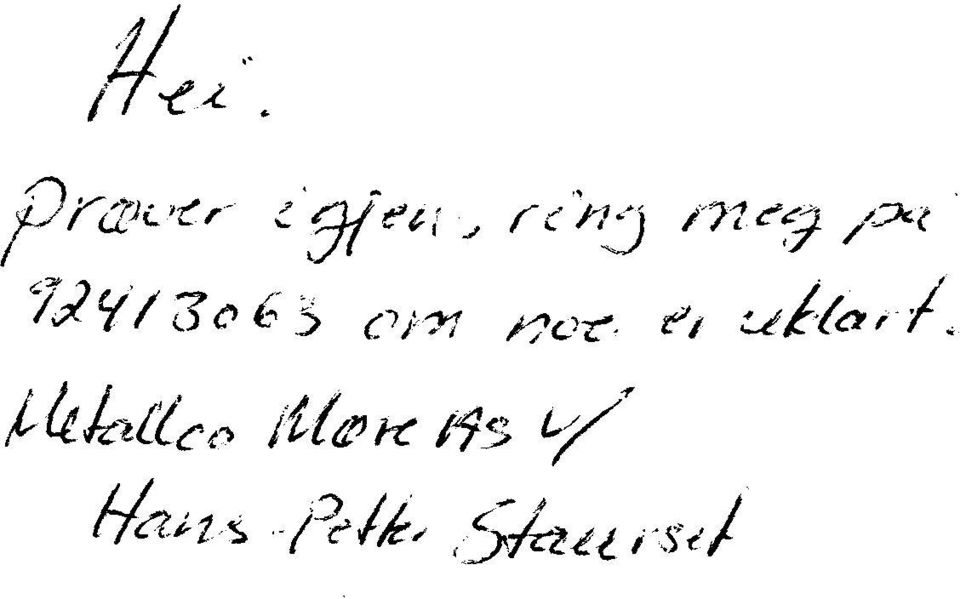 Hei.
prøver igjen, ring meg på
92413063 om noe er uklart.
Metallco Møre AS v/
Hans-Petter Staurset